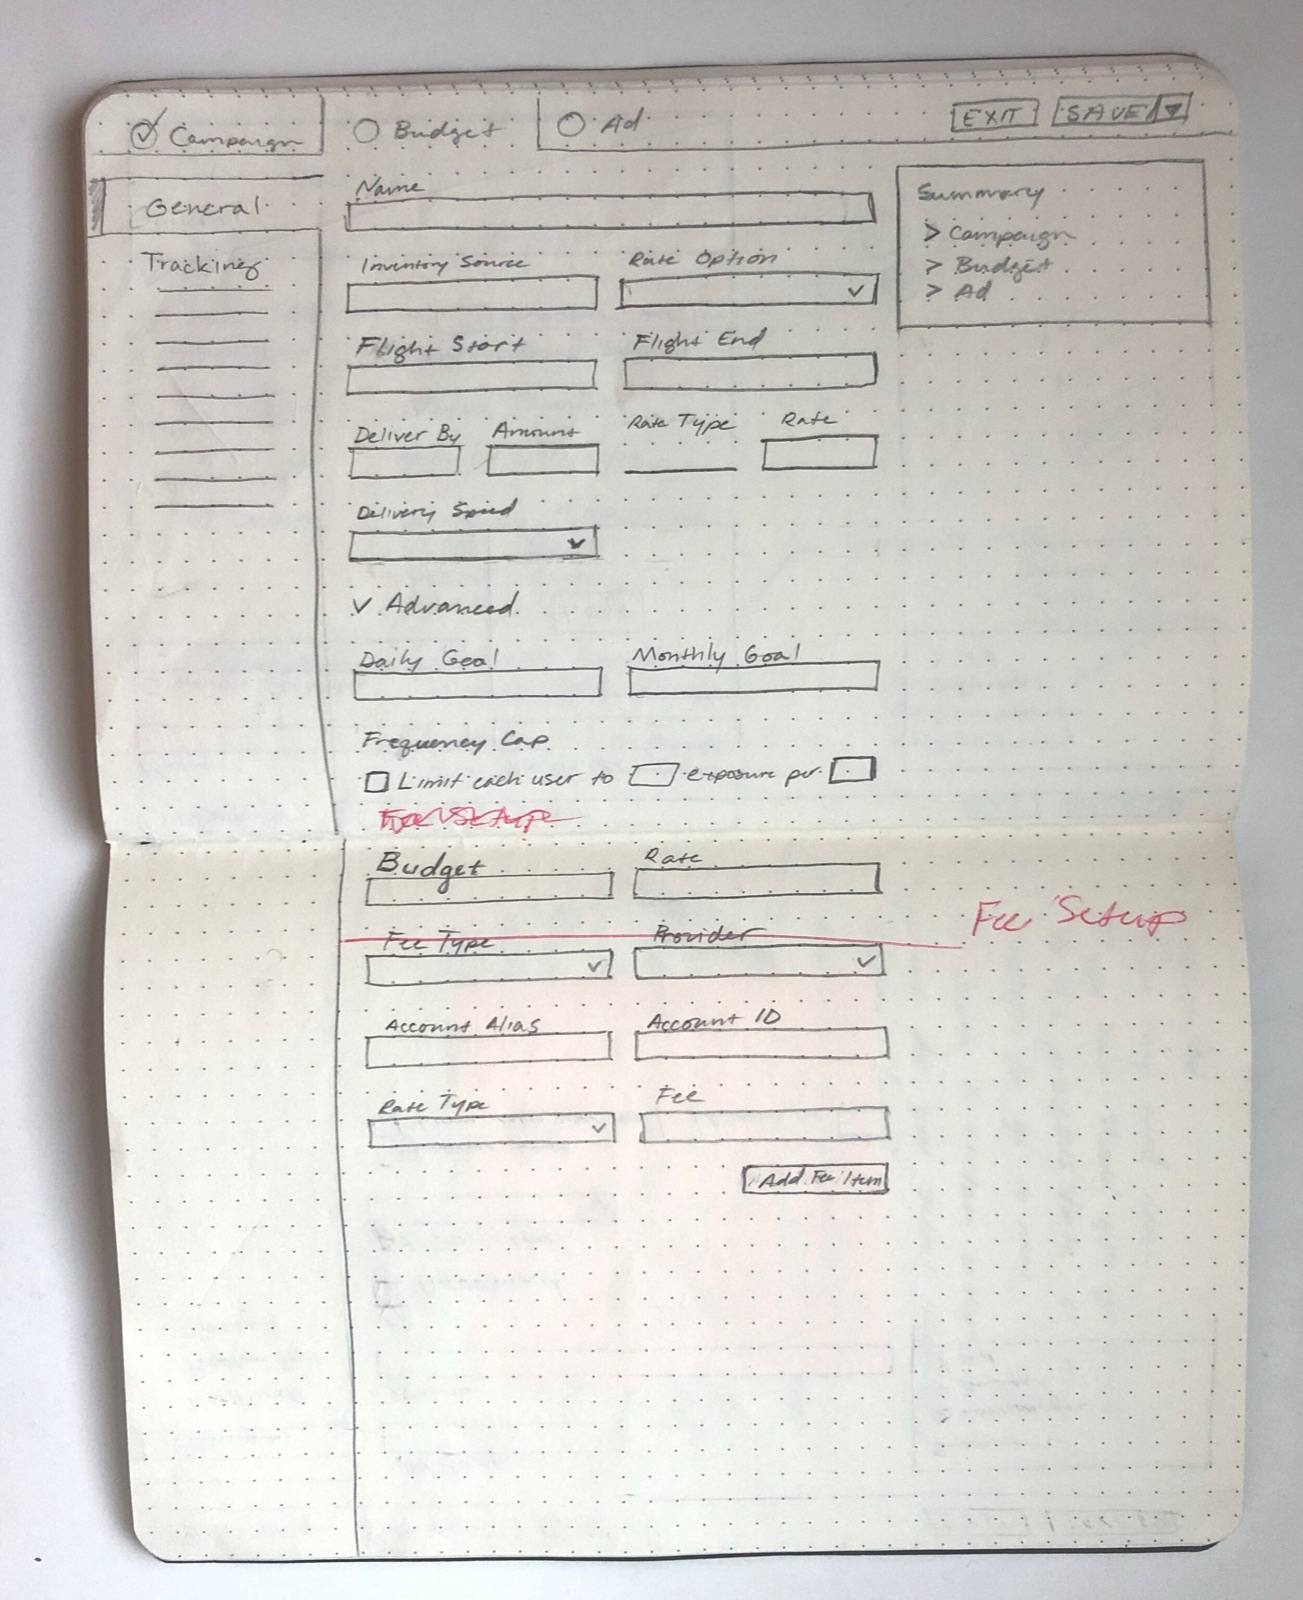 Campaign Budget Ad EXIT SAVE
General
Tracking
Name
Inventory Source Rate Option
Flight Start Flight End
Deliver By Amount Rate Type Rate
Delivery Speed
Advanced
Daily Goal Monthly Goal
Frequency Cap
Limit each user to exposure per
Fee Setup
Budget Rate
Fee Type Provider
Account Alias Account ID
Rate Type Fee
Add Fee Item
Summary
> Campaign
> Budget
> Ad
Fee Setup